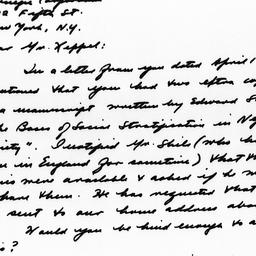 Fifth St.
New York, N.Y.
Mr. Keppel:
In a letter from you dated April 1
that you had two extra co
a manuscript written by Edward S
he Bases of Social Stratification in Neg
iety". I notified Mr. Shils (who h
n in England for sometime) that th
were available & asked if he w
have them. He has requested that
sent to our home address abo
Would you be kind enough to a